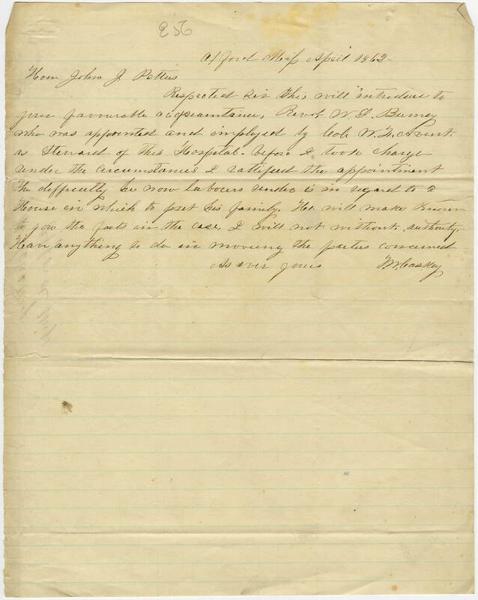 256
Oxford Miss April 1862
Hon John J Pettus
Respected Sir this will introduce to
your favourable acquaintance, Revd W. S. Burney
who was appointed and employed by Col W. F. Avent
as Steward of this Hospital before I took charge
under the circumstances I ratified the appointment
The difficulty he now labours under is in regard to a
House in which to put his family, He will make known
to you the facts in the case, I will not without authority
Have anything to do in moving the parties concerned
As ever yours T W Caskey